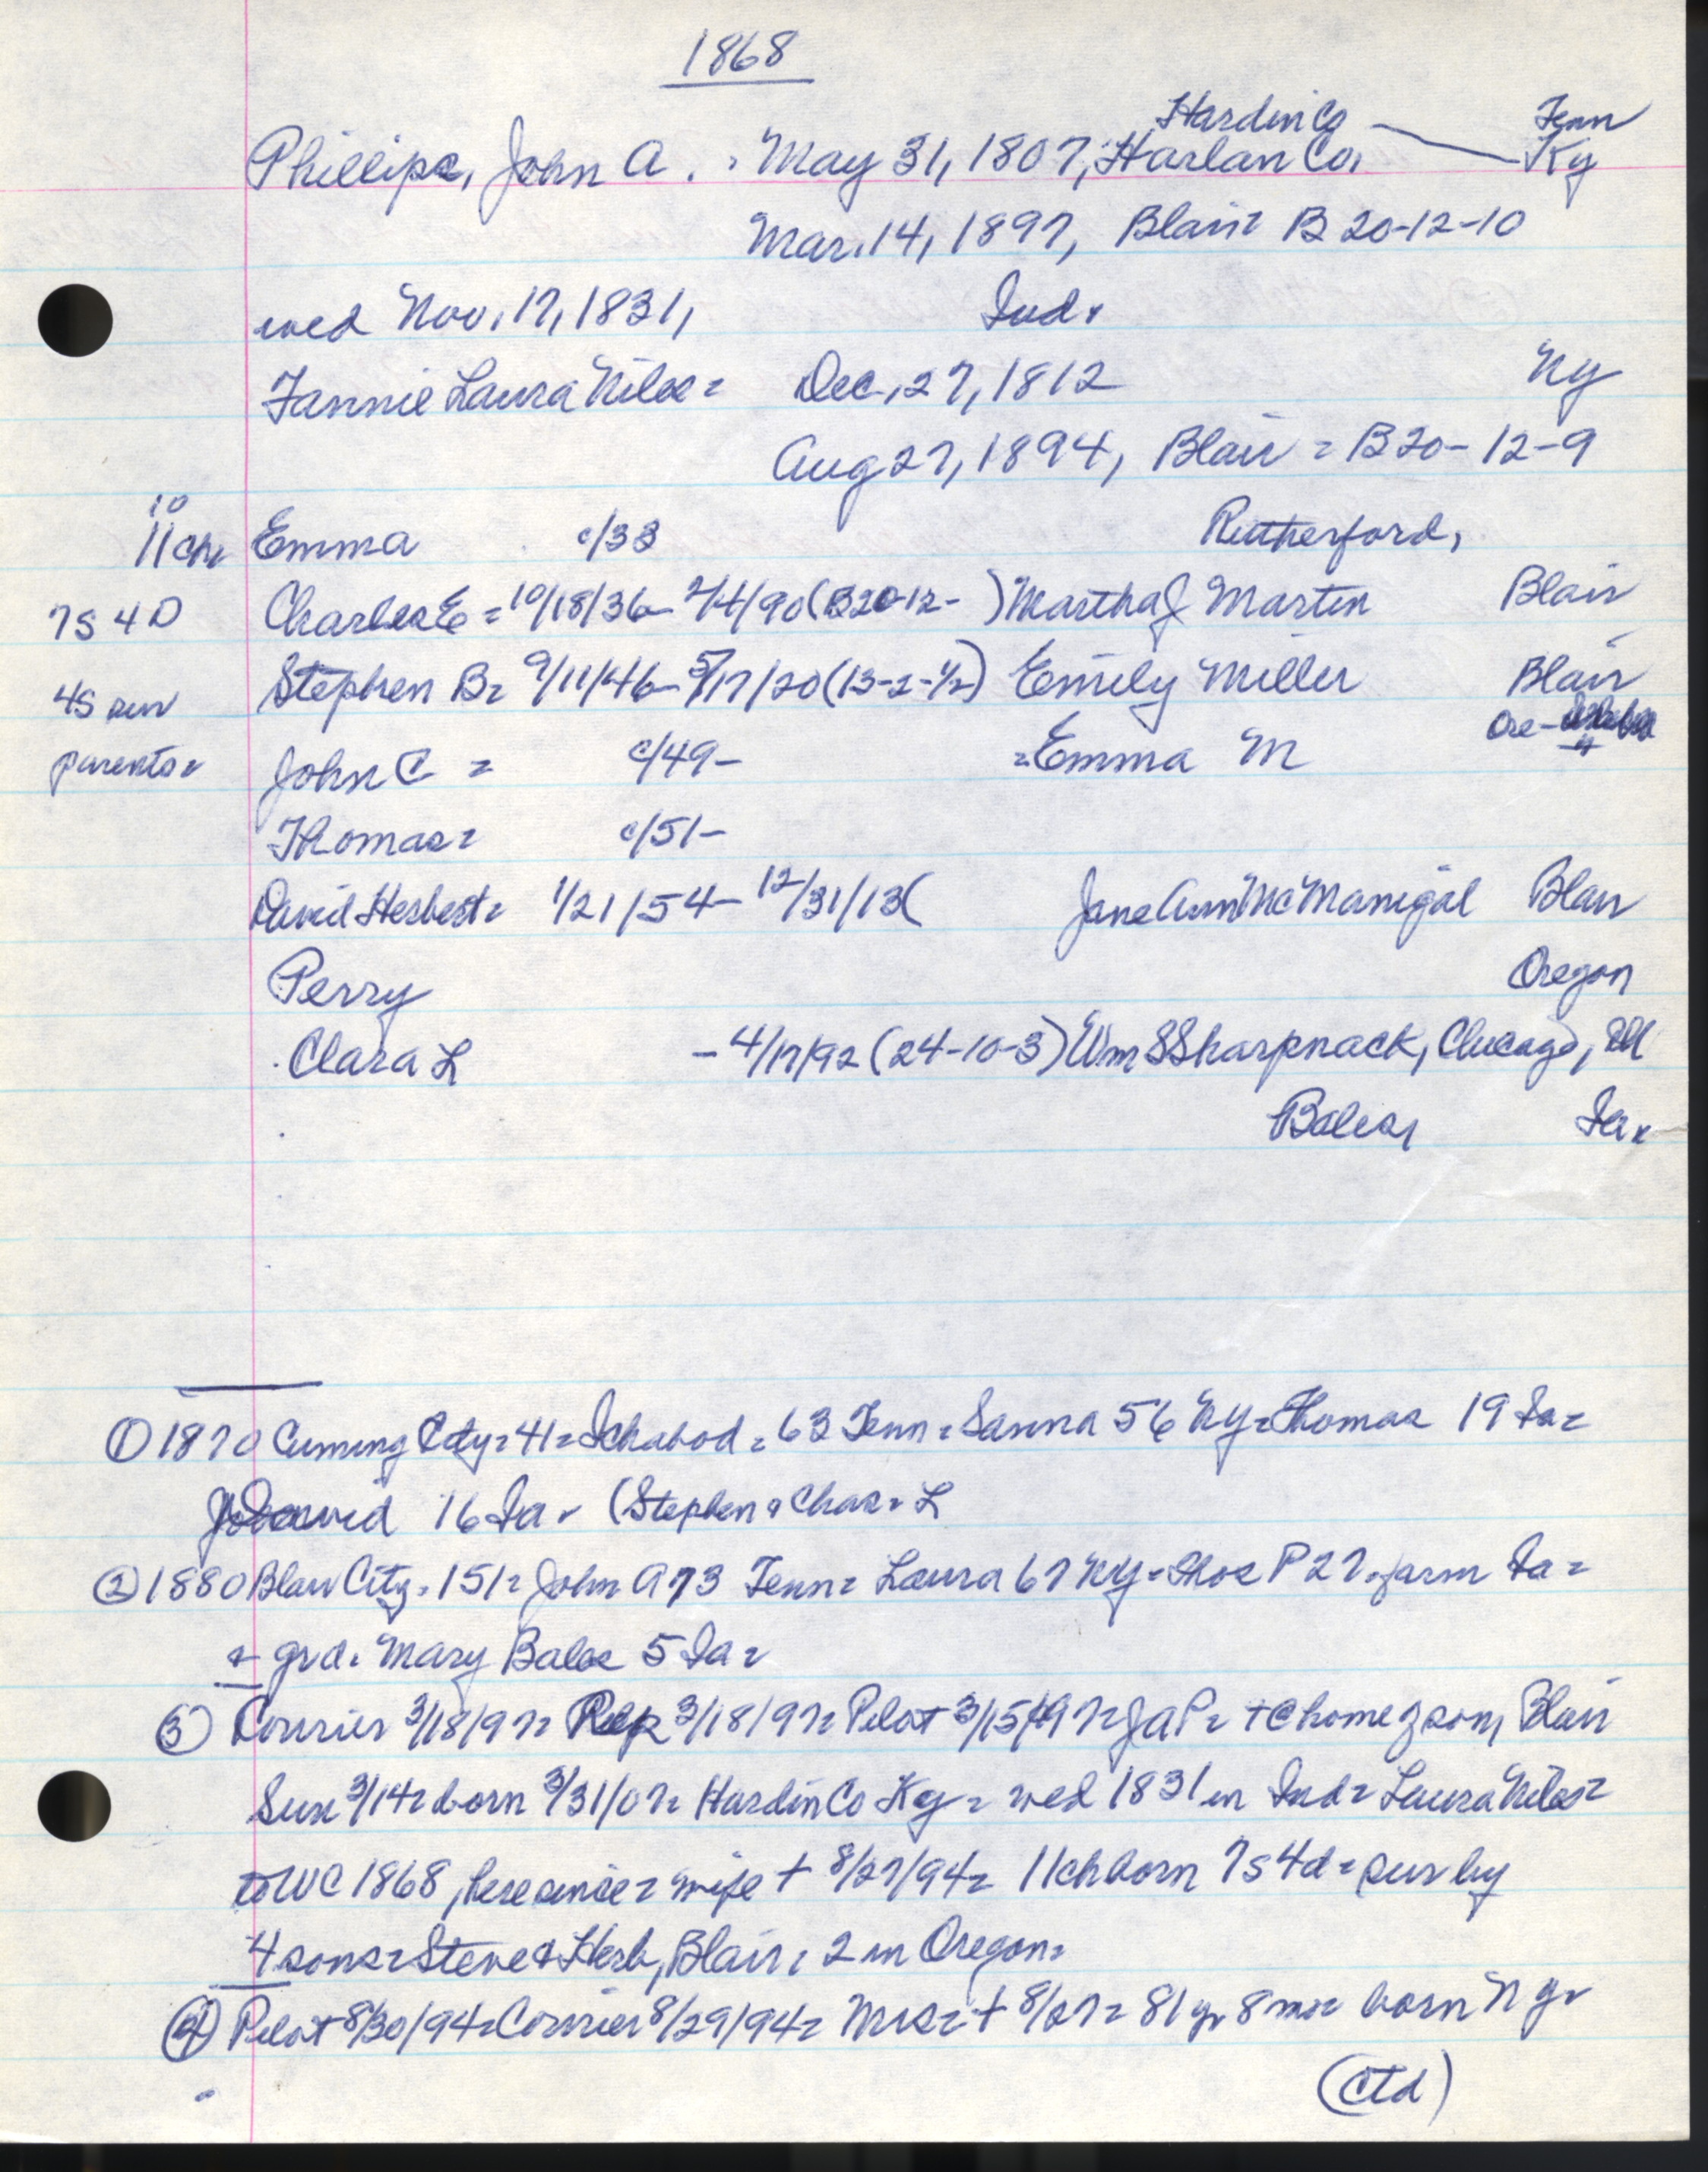 1868
Hardin Co Tenn
Phillips, John A. May 31, 1807, Harlan Co. Ky
Mar. 14, 1897, Blair B 20-12-10
wed Nov. 17, 1831, Ind.
Fannie Laura Niles = Dec. 27, 1812 NY
Aug 27, 1894, Blair = B20-12-9
10
11 ch Emma c/33 Rutherford,
7S 4D Charles E = 10/18/36- 2/4/90 (B20-12- ) Martha J Martin Blair
4S sur Stephen B = 9/11/46- 5/17/20 (13-2-1/2) Emily Miller Blair
Ore-
parents John C = c/49- =Emma M
Thomas = c/51-
David Herbert = 1/21/54- 12/31/13( Jane Ann McManigal Blair
Perry Oregon
Clara L - 4/17/92 (24-10-3) Wm S Sharpnack, Chicago, Ill
Bales, Ia.
① 1870 Cuming City = 41 = Ichabod = 63 Tenn = Laura 56 NY = Thomas 19 Ia =
David 16 Ia. (Stephen & Chas = L
② 1880 Blair City = 151 = John A 73 Tenn = Laura 67 NY = Thos P 27 farm Ia =
+ grd. Mary Bales 5 Ia =
③ Courier 3/18/97 = Rep 3/18/97 = Pilot 3/15/97 = JAP = + @ home of son, Blair
Sun 3/14 = born 3/31/07 = Hardin Co Ky = wed 1831 in Ind = Laura Niles =
to WC 1868, here since = wife + 8/27/94 = 11 ch born 7s 4d = sur by
4 sons = Steve & Herb, Blair, 2 in Oregon.
④ Pilot 8/30/94 = Courier 8/29/94 = Mrs = + 8/27 = 81 yr 8 mo = born NY.
(Ctd)